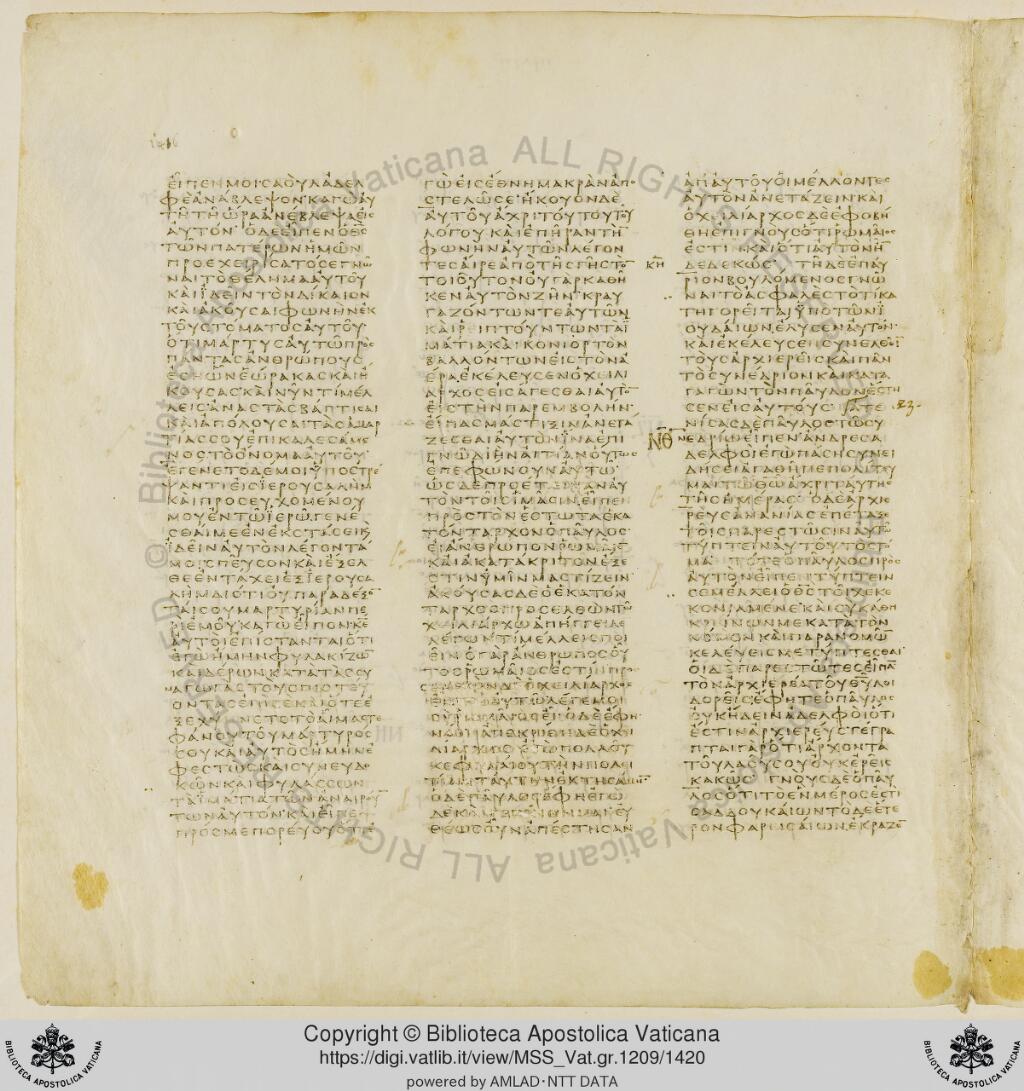 1416
ΕΙΠΕΝΜΟΙΣΑΟΥΛΑΔΕΛ
ΦΕΑΝΑΒΛΕΨΟΝΚΑΓΩΑΥ
ΤΗΤΗΩΡΑΑΝΕΒΛΕΨΑΕΙΣ
ΑΥΤΟΝΟΔΕΕΙΠΕΝΟΘΣ
ΤΩΝΠΑΤΕΡΩΝΗΜΩΝ
ΠΡΟΕΧΕΙΡΙΣΑΤΟΣΕΓΝΩ
ΝΑΙΤΟΘΕΛΗΜΑΑΥΤΟΥ
ΚΑΙΙΔΕΙΝΤΟΝΔΙΚΑΙΟΝ
ΚΑΙΑΚΟΥΣΑΙΦΩΝΗΝΕΚ
ΤΟΥΣΤΟΜΑΤΟΣΑΥΤΟΥ
ΟΤΙΜΑΡΤΥΣΑΥΤΩΠΡΟΣ
ΠΑΝΤΑΣΑΝΘΡΩΠΟΥΣ
ΕΣΗΩΝΕΩΡΑΚΑΣΚΑΙΗ
ΚΟΥΣΑΣΚΑΙΝΥΝΤΙΜΕΛ
ΛΕΙΣΑΝΑΣΤΑΣΒΑΠΤΙΣΑΙ
ΚΑΙΑΠΟΛΟΥΣΑΙΤΑΣΑΜΑΡ
ΤΙΑΣΣΟΥΕΠΙΚΑΛΕΣΑΜΕ
ΝΟΣΤΟΟΝΟΜΑΑΥΤΟΥ
ΕΓΕΝΕΤΟΔΕΜΟΙΥΠΟΣΤΡΕ
ΨΑΝΤΙΕΙΣΙΕΡΟΥΣΑΛΗΜ
ΚΑΙΠΡΟΣΕΥΧΟΜΕΝΟΥ
ΜΟΥΕΝΤΩΙΕΡΩΓΕΝΕ
ΣΘΑΙΜΕΕΝΕΚΣΤΑΣΕΙΚ
ΙΔΕΙΝΑΥΤΟΝΛΕΓΟΝΤΑ
ΜΟΙΣΠΕΥΣΟΝΚΑΙΕΞΕΛ
ΘΕΕΝΤΑΧΕΙΕΞΙΕΡΟΥΣΑ
ΛΗΜΔΙΟΤΙΟΥΠΑΡΑΔΕΞΟ
ΤΑΙΣΟΥΜΑΡΤΥΡΙΑΝΠΕ
ΡΙΕΜΟΥΚΑΓΩΕΙΠΟΝΚΕ
ΑΥΤΟΙΕΠΙΣΤΑΝΤΑΙΟΤΙ
ΕΓΩΗΜΗΝΦΥΛΑΚΙΖΩ
ΚΑΙΔΕΡΩΝΚΑΤΑΤΑΣΣΥ
ΝΑΓΩΓΑΣΤΟΥΣΠΙΣΤΕΥ
ΟΝΤΑΣΕΠΙΣΕΚΑΙΟΤΕΕ
ΞΕΧΥΝΝΕΤΟΤΟΑΙΜΑΣΤΕ
ΦΑΝΟΥΤΟΥΜΑΡΤΥΡΟΣ
ΣΟΥΚΑΙΑΥΤΟΣΗΜΗΝΕ
ΦΕΣΤΩΣΚΑΙΣΥΝΕΥΔΟ
ΚΩΝΚΑΙΦΥΛΑΣΣΩΝ
ΤΑΙΜΑΤΙΑΤΩΝΑΝΑΙΡΟΥ
ΤΩΝΑΥΤΟΝΚΑΙΕΙΠΕΝ
ΠΡΟΣΜΕΠΟΡΕΥΟΥΟΤΙΕ
ΓΩΕΙΣΕΘΝΗΜΑΚΡΑΝΑΠΟ
ΣΤΕΛΩΣΕΗΚΟΥΟΝΔΕ
ΑΥΤΟΥΑΧΡΙΤΟΥΤΟΥΤΟΥ
ΛΟΓΟΥΚΑΙΕΠΗΡΑΝΤΗ
ΦΩΝΗΝΑΥΤΩΝΛΕΓΟΝ
ΤΕΣΑΙΡΕΑΠΟΤΗΣΓΗΣΤΟ
ΤΟΙΟΥΤΟΝΟΥΓΑΡΚΑΘΗ
ΚΕΝΑΥΤΟΝΖΗΝΚΡΑΥ
ΓΑΖΟΝΤΩΝΤΕΑΥΤΩΝ
ΚΑΙΡΕΙΠΤΟΥΝΤΩΝΤΑΙ
ΜΑΤΙΑΚΑΙΚΟΝΙΟΡΤΟΝ
ΒΑΛΛΟΝΤΩΝΕΙΣΤΟΝΑ
ΕΡΑΕΚΕΛΕΥΣΕΝΟΧΕΙΛΙ
ΑΡΧΟΣΕΙΣΑΓΕΣΘΑΙΑΥΤΟ
ΕΙΣΤΗΝΠΑΡΕΜΒΟΛΗΝ
ΕΙΠΑΣΜΑΣΤΙΞΙΝΑΝΕΤΑ
ΖΕΣΘΑΙΑΥΤΟΝΙΝΑΕΠΙ
ΓΝΩΔΙΗΝΑΙΤΙΑΝΟΥΤΩΣ
ΕΠΕΦΩΝΟΥΝΑΥΤΩ
ΩΣΔΕΠΡΟΕΤΕΙΝΑΝΑΥ
ΤΟΝΤΟΙΣΙΜΑΣΙΝΕΙΠΕΝ
ΠΡΟΣΤΟΝΕΣΤΩΤΑΕΚΑ
ΤΟΝΤΑΡΧΟΝΟΠΑΥΛΟΣ
ΕΙΑΝΘΡΩΠΟΝΡΩΜΑΙΟ
ΚΑΙΑΚΑΤΑΚΡΙΤΟΝΕΞΕ
ΣΤΙΝΥΜΙΝΜΑΣΤΙΖΕΙΝ
ΑΚΟΥΣΑΣΔΕΟΕΚΑΤΟΝ
ΤΑΡΧΟΣΠΡΟΣΕΛΘΩΝΤΩ
ΧΕΙΛΙΑΡΧΩΑΠΗΓΓΕΙΛΕ
ΛΕΓΩΝΤΙΜΕΛΛΕΙΣΠΟΙ
ΕΙΝΟΓΑΡΑΝΘΡΩΠΟΣΟΥ
ΤΟΣΡΩΜΑΙΟΣΕΣΤΙΝΠΡΟ
ΣΕΛΘΩΝΔΕΟΧΕΙΛΙΑΡΧΟΣ
ΕΙΠΕΝΑΥΤΩΛΕΓΕΜΟΙ
ΣΥΡΩΜΑΙΟΣΕΙΟΔΕΕΦΗ
ΝΑΙΑΠΕΚΡΙΘΗΔΕΟΧΕΙ
ΛΙΑΡΧΟΣΕΓΩΠΟΛΛΟΥ
ΚΕΦΑΛΑΙΟΥΤΗΝΠΟΛΕΙ
ΤΕΙΑΝΤΑΥΤΗΝΕΚΤΗΣΑΜΗΝ
ΟΔΕΠΑΥΛΟΣΕΦΗΕΓΩ
ΔΕΚΑΙΓΕΓΕΝΝΗΜΑΙΕΥ
ΘΕΩΣΟΥΝΑΠΕΣΤΗΣΑΝ
ΑΠΑΥΤΟΥΟΙΜΕΛΛΟΝΤΕΣ
ΑΥΤΟΝΑΝΕΤΑΖΕΙΝΚΑΙ
ΟΧΕΙΛΙΑΡΧΟΣΔΕΕΦΟΒΗ
ΘΗΕΠΙΓΝΟΥΣΟΤΙΡΩΜΑΙΟΣ
ΕΣΤΙΝΚΑΙΟΤΙΑΥΤΟΝΗ
ΚΗ ΔΕΔΕΚΩΣ ΤΗΔΕΕΠΑΥ
ΡΙΟΝΒΟΥΛΟΜΕΝΟΣΓΝΩ
ΝΑΙΤΟΑΣΦΑΛΕΣΤΟΤΙΚΑ
ΤΗΓΟΡΕΙΤΑΙΥΠΟΤΩΝΙ
ΟΥΔΑΙΩΝΕΛΥΣΕΝΑΥΤΟΝ
ΚΑΙΕΚΕΛΕΥΣΕΝΣΥΝΕΛΘΕΙ
ΤΟΥΣΑΡΧΙΕΡΕΙΣΚΑΙΠΑΝ
ΤΟΣΥΝΕΔΡΙΟΝΚΑΙΚΑΤΑ
ΓΑΓΩΝΤΟΝΠΑΥΛΟΝΕΣΤΗ
ΣΕΝΕΙΣΑΥΤΟΥΣ ΑΤΕ 23
ΝΙΣΑΣΔΕΠΑΥΛΟΣΤΩΣΥ
ΝΘ ΝΕΔΡΙΩΕΙΠΕΝΑΝΔΡΕΣΑ
ΔΕΛΦΟΙΕΓΩΠΑΣΗΣΥΝΕΙ
ΔΗΣΕΙΑΓΑΘΗΠΕΠΟΛΙΤΕΥ
ΜΑΙΤΩΘΩΑΧΡΙΤΑΥΤΗΣ
ΤΗΣΗΜΕΡΑΣΟΔΕΑΡΧΙΕ
ΡΕΥΣΑΝΑΝΙΑΣΕΠΕΤΑΞΕ
ΤΟΙΣΠΑΡΕΣΤΩΣΙΝΑΥΤΩ
ΤΥΠΤΕΙΝΑΥΤΟΥΤΟΣΤΟ
ΜΑΤΟΤΕΟΠΑΥΛΟΣΠΡΟΣ
ΑΥΤΟΝΕΙΠΕΝΤΥΠΤΕΙΝ
ΣΕΜΕΛΛΕΙΟΘΣΤΟΙΧΕΚΕ
ΚΟΝΙΑΜΕΝΕΚΑΙΣΥΚΑΘΗ
ΚΡΙΝΩΝΜΕΚΑΤΑΤΟΝ
ΝΟΜΟΝΚΑΙΠΑΡΑΝΟΜΩ
ΚΕΛΕΥΕΙΣΜΕΤΥΠΤΕΣΘΑΙ
ΟΙΔΕΠΑΡΕΣΤΩΤΕΣΕΙΠΑ
ΤΟΝΑΡΧΙΕΡΕΑΤΟΥΘΥΛΟΙ
ΔΟΡΕΙΣΕΦΗΤΕΟΠΑΥΛΟΣ
ΟΥΚΗΔΕΙΝΑΔΕΛΦΟΙΟΤΙ
ΕΣΤΙΝΑΡΧΙΕΡΕΥΣΓΕΓΡΑ
ΠΤΑΙΓΑΡΟΤΙΑΡΧΟΝΤΑ
ΤΟΥΛΑΟΥΣΟΥΟΥΚΕΡΕΙΣ
ΚΑΚΩΣΓΝΟΥΣΔΕΟΠΑΥ
ΛΟΣΟΤΙΤΟΕΝΜΕΡΟΣΕΣΤΙ
ΣΑΔΔΟΥΚΑΙΩΝΤΟΔΕΕΤΕ
ΡΟΝΦΑΡΕΙΣΑΙΩΝΕΚΡΑΖΕ
© Biblioteca Apostolica Vaticana ALL RIGHTS RESERVED
Copyright © Biblioteca Apostolica Vaticana
https://digi.vatlib.it/view/MSS_Vat.gr.1209/1420
powered by AMLAD·NTT DATA
BIBLIOTECA APOSTOLICA VATICANA
BIBLIOTECA APOSTOLICA VATICANA